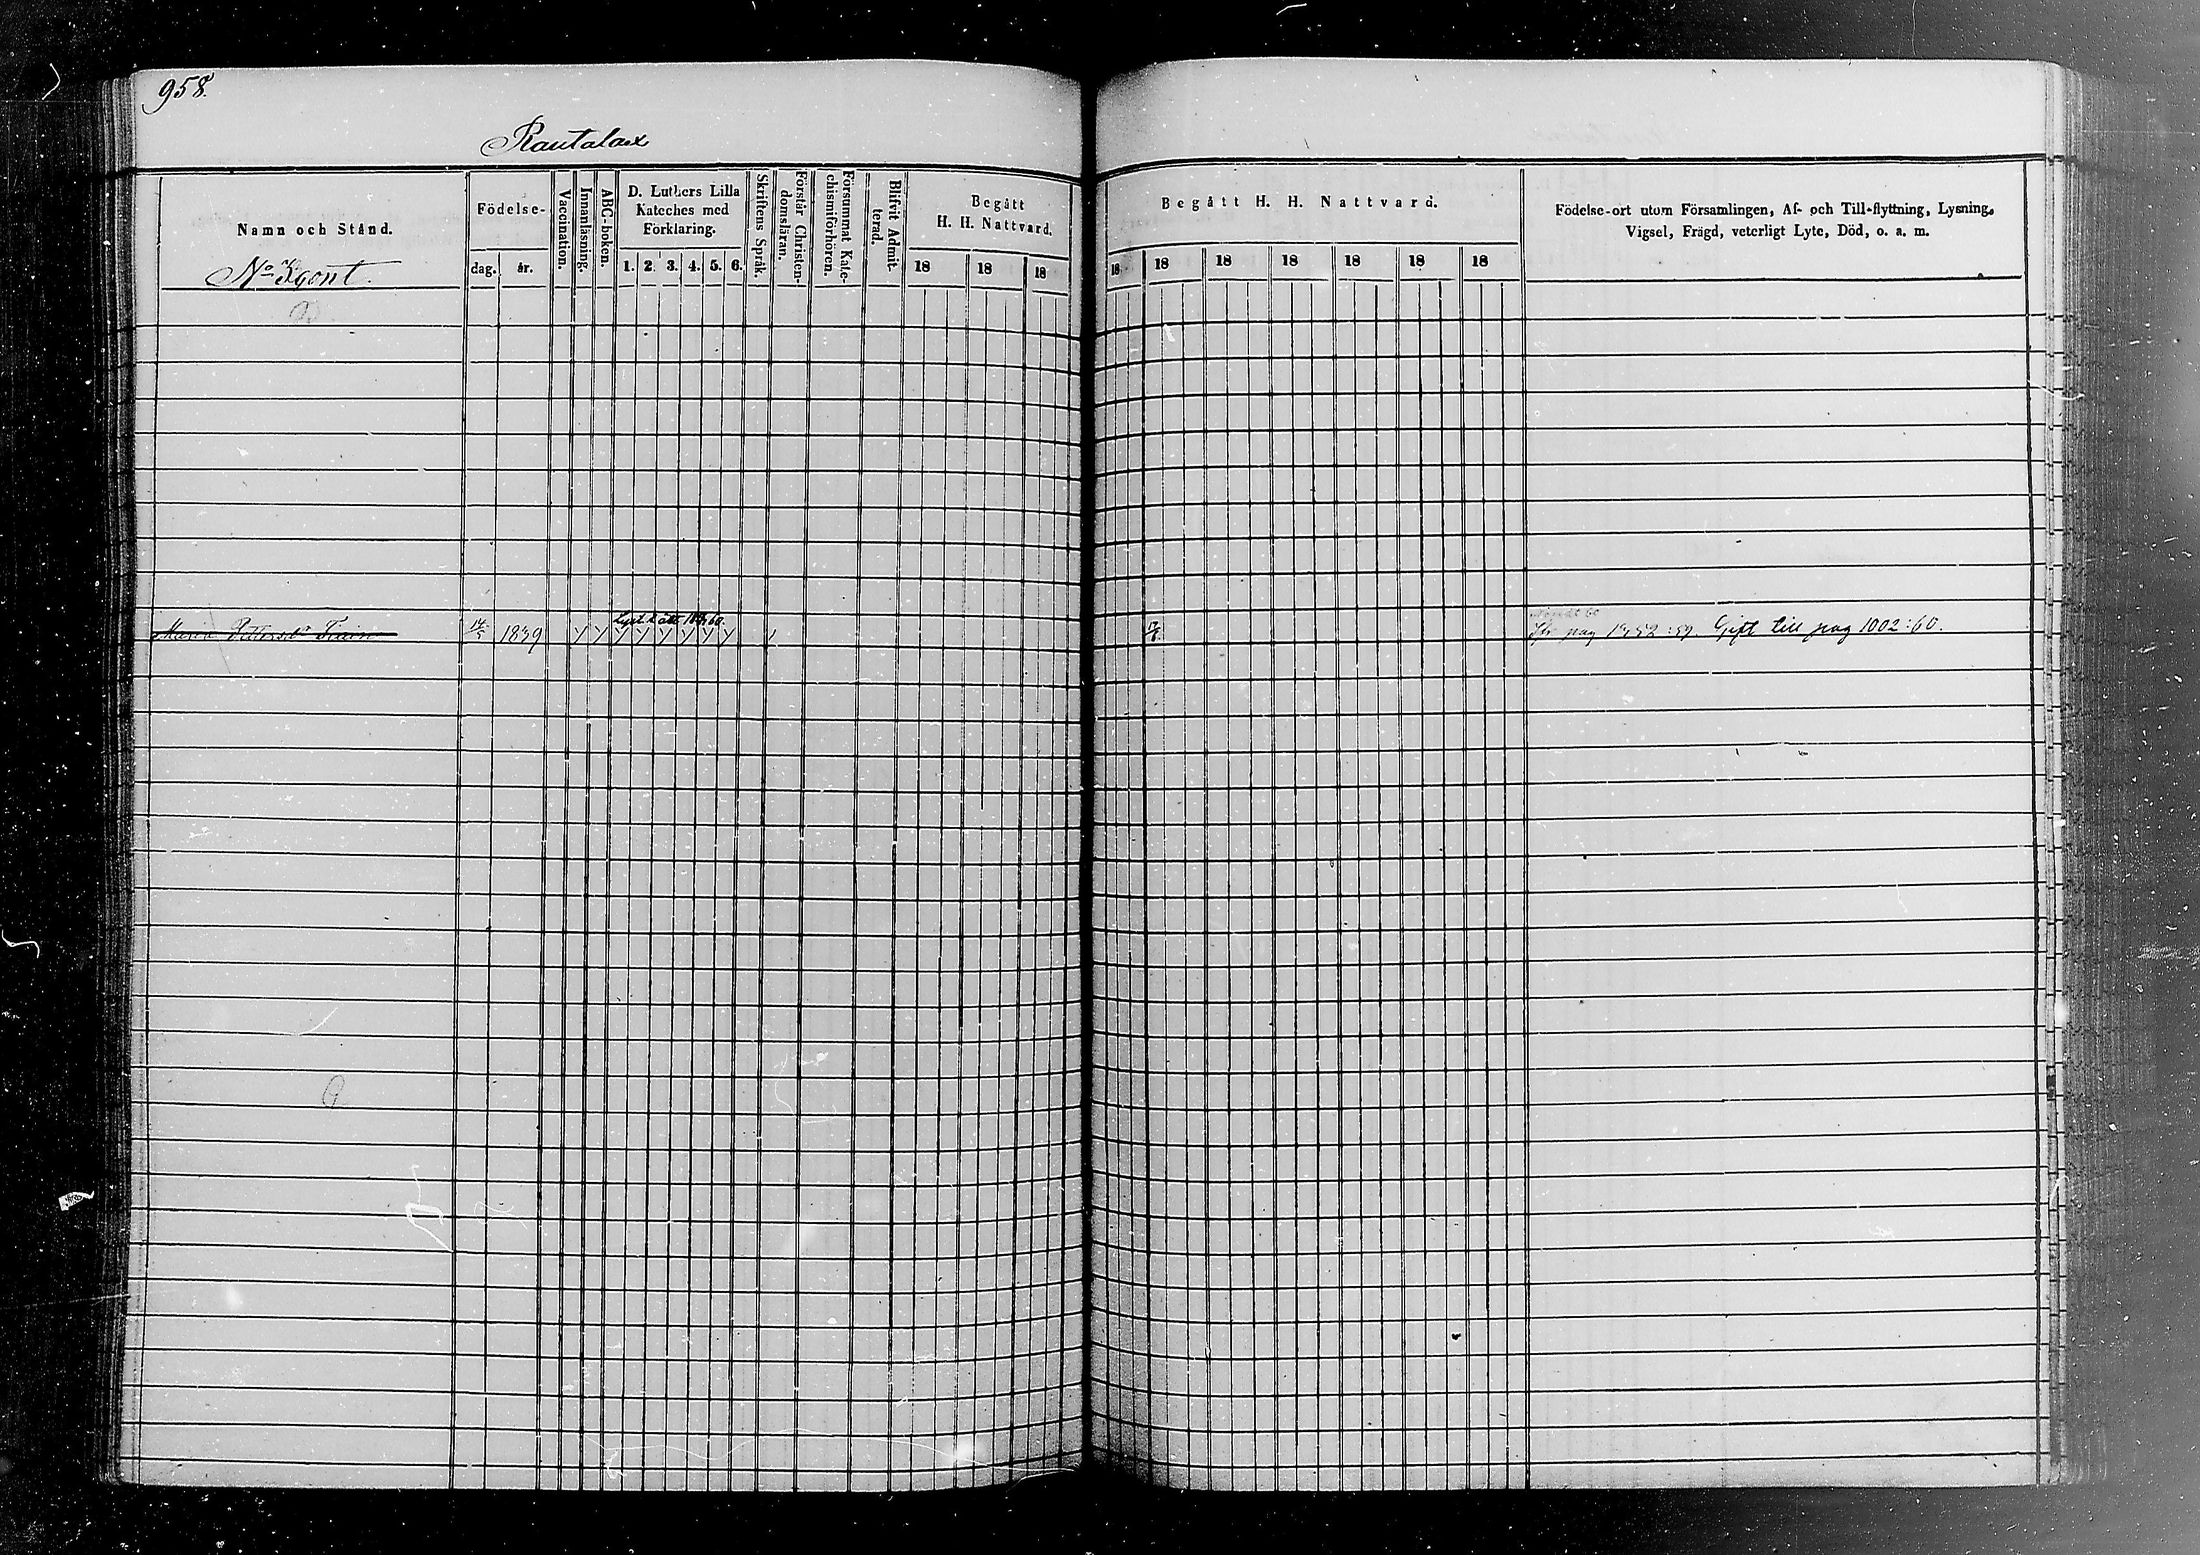 958.
Rautalax
Namn och Stånd.
Födelse-
dag. år.
Vaccination.
Innanläsning.
ABC-boken.
D. Luthers Lilla
Kateches med
Förklaring.
1. 2. 3. 4. 5. 6.
Skriftens Språk.
Förstår Christen-
domsläran.
Försummat Kate-
chismiförhören.
Blifvit Admit-
terad.
Begått
H. H. Nattvard.
18 18 18
Begått H. H. Nattvard.
18 18 18 18 18 18 18
Födelse-ort utom Församlingen, Af- och Till-flyttning, Lysning,
Vigsel, Frägd, veterligt Lyte, Död, o. a. m.
No Egont.
Maria Pettersdr 1839 Gift till pag 1002:60.